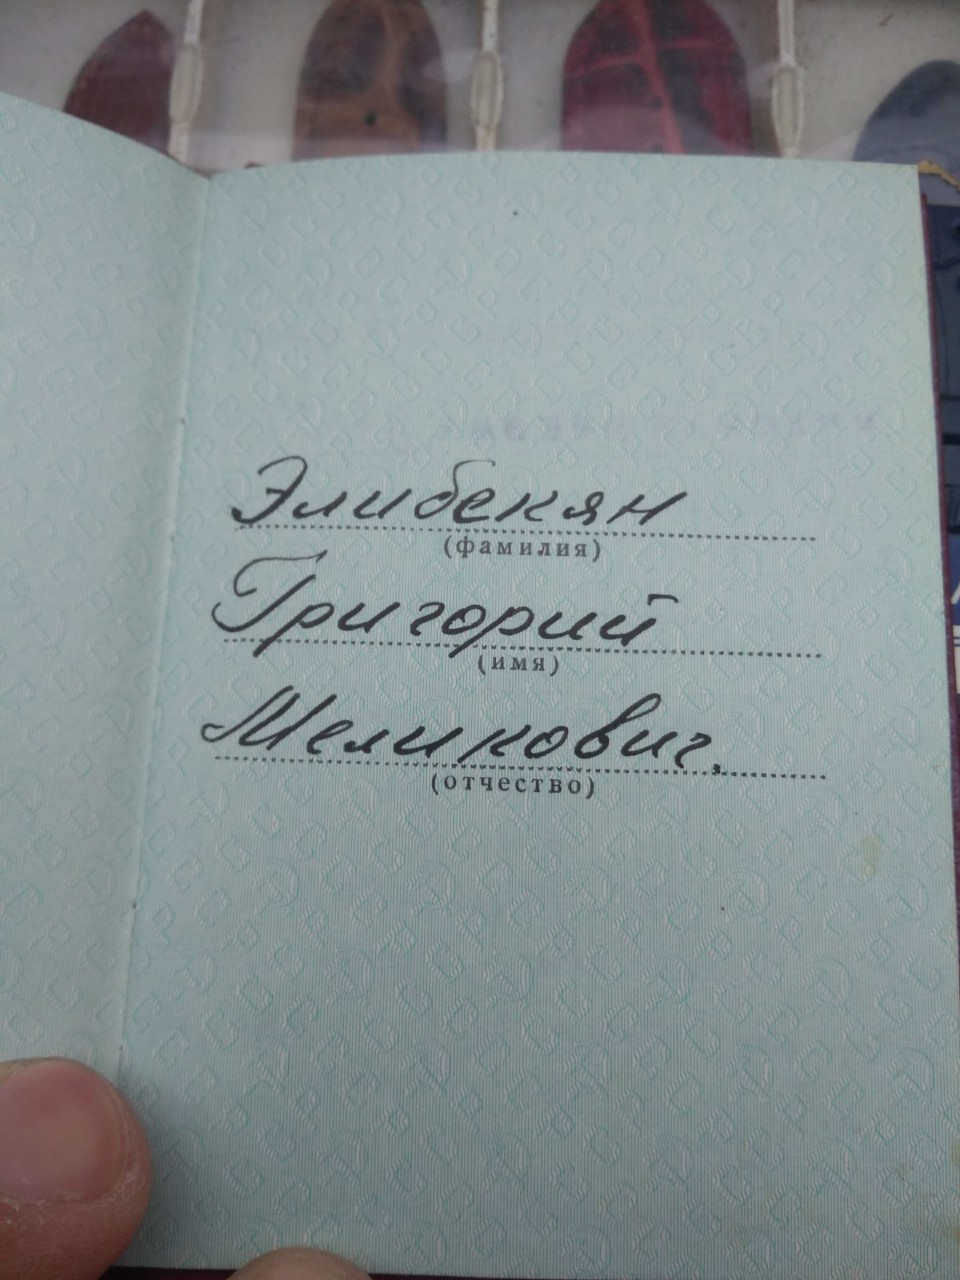 Элибекян
(фамилия)
Григорий
(имя)
Меликович.
(отчество)